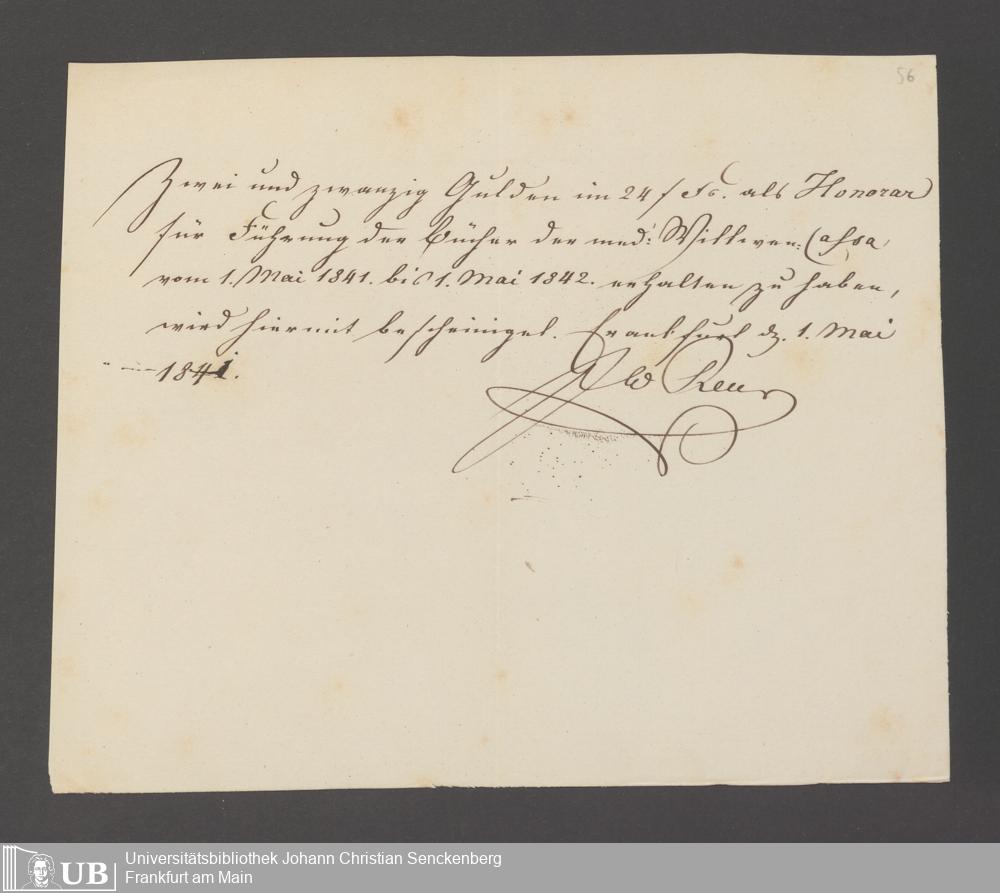 56
Zwei und zwanzig Gulden im 24 f Fs. als Honorar
für Führung der Bücher der med: Wittwen: Cassa
vom 1. Mai 1841. bis 1. Mai 1842. erhalten zu haben,
wird hiermit bescheiniget. Frankfurt d. 1. Mai
1841.
UB
Universitätsbibliothek Johann Christian Senckenberg
Frankfurt am Main